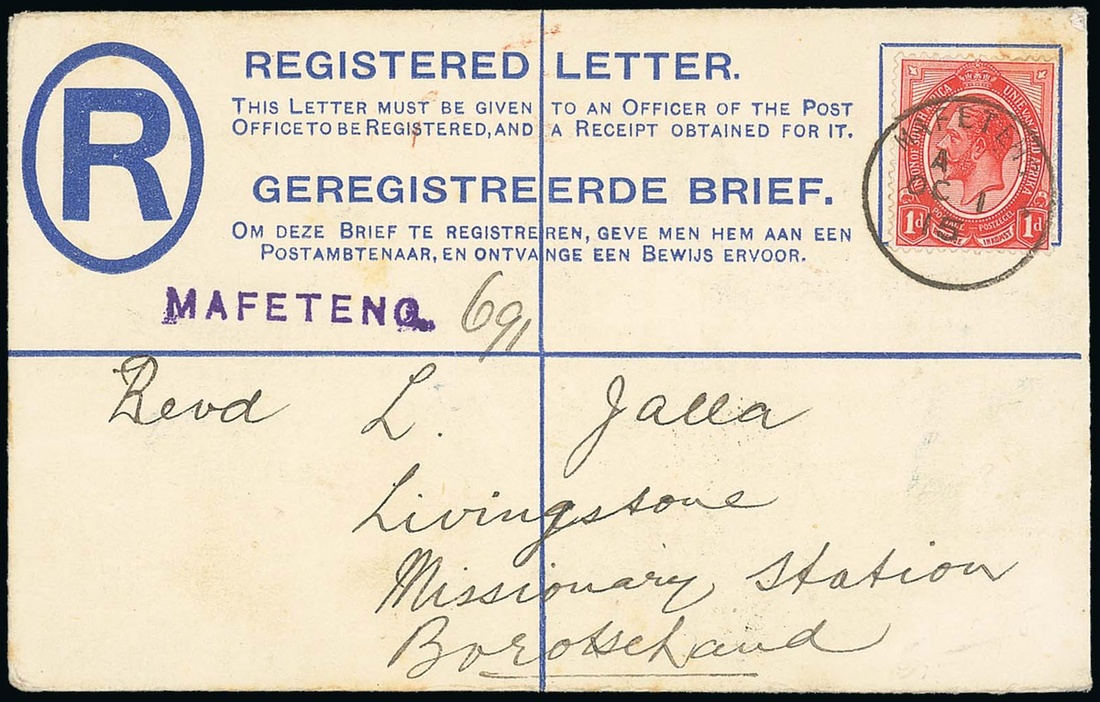 R
REGISTERED LETTER.
THIS LETTER MUST BE GIVEN TO AN OFFICER OF THE POST
OFFICE TO BE REGISTERED, AND A RECEIPT OBTAINED FOR IT.
GEREGISTREERDE BRIEF.
OM DEZE BRIEF TE REGISTREREN, GEVE MEN HEM AAN EEN
POSTAMBTENAAR, EN ONTVANGE EEN BEWIJS ERVOOR.
MAFETENG. 691
UNION OF SOUTH AFRICA UNIE VAN ZUID AFRIKA
1d POSTZEGEL 1d
INKOMST
MAFETENG
A
OC 1
15
Revd L. Jalla
Livingstone
Missionary Station
Borotseland